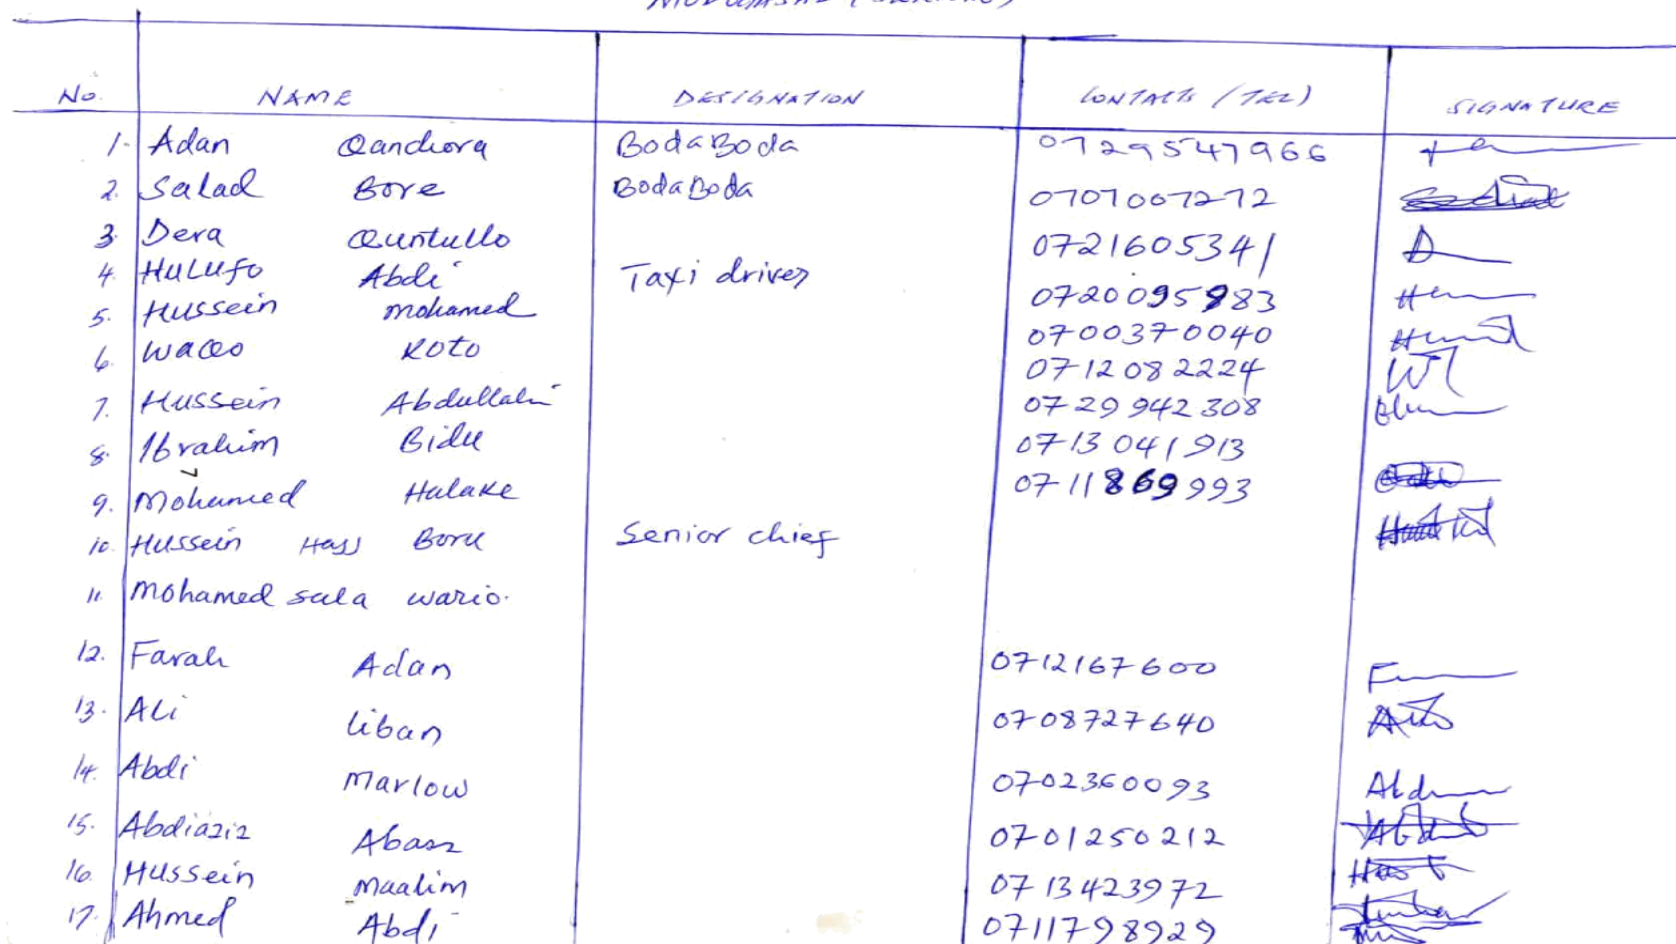 No. NAME DESIGNATION CONTACTS (TEL) SIGNATURE
1. Adan Qanchora BodaBoda 0729547966
2. Salad Bore BodaBoda 0707007272
3. Dera Quntullo 0721605341 D
4. HuLufo Abdi Taxi driver 0720095983
5. Hussein mohamed 0700370040
6. waqo Roto 0712082224
7. Hussein Abdullahi 0729942308
8. Ibrahim Bidu 0713041913
9. Mohamed Halake 0711869993
10. Hussein Hass Boru Senior chief
11. Mohamed sala wario.
12. Farah Adan 0712167600
13. ALi liban 0708727640
14. Abdi Marlow 0702360093
15. Abdiaziz Abass 0701250212
16. Hussein maalim 0713423972
17. Ahmed Abdi 0711798929